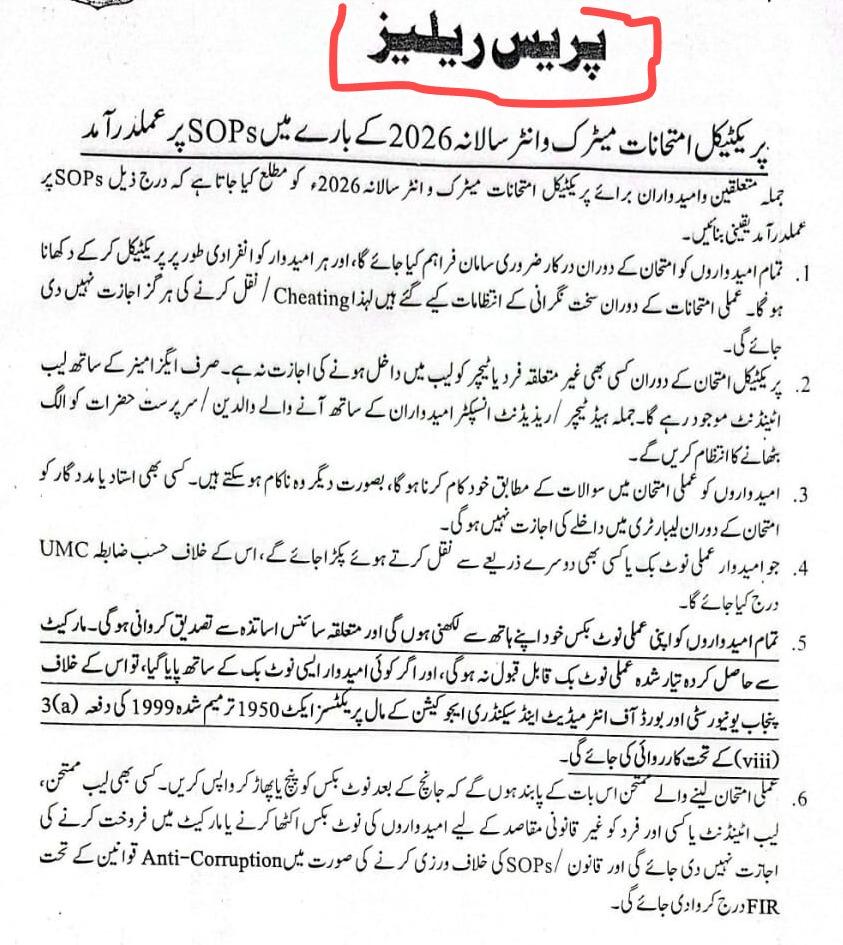 پریس ریلیز
پریکٹیکل امتحانات میٹرک و انٹر سالانہ 2026 کے بارے میں SOPs پر عملدرآمد
جملہ متعلقین و امیدواران برائے پریکٹیکل امتحانات میٹرک و انٹر سالانہ 2026ء کو مطلع کیا جاتا ہے کہ درج ذیل SOPs پر
عملدرآمد یقینی بنائیں۔
1. تمام امیدواروں کو امتحان کے دوران درکار ضروری سامان فراہم کیا جائے گا، اور ہر امیدوار کو انفرادی طور پر پریکٹیکل کر کے دکھانا
ہونگا۔ عملی امتحانات کے دوران سخت نگرانی کے انتظامات کیے گئے ہیں لہذا Cheating / نقل کرنے کی ہرگز اجازت نہیں دی
جائے گی۔
2. پریکٹیکل امتحان کے دوران کسی بھی غیر متعلقہ فرد یا ٹیچر کو لیب میں داخل ہونے کی اجازت نہ ہے۔ صرف ایگزامینر کے ساتھ لیب
اٹینڈنٹ موجود رہے گا۔ جملہ ہیڈ ٹیچر / ریذیڈنٹ انسپکٹر امیدواران کے ساتھ آنے والے والدین / سرپرست حضرات کو الگ
بٹھانے کا انتظام کریں گے۔
3. امیدواروں کو عملی امتحان میں سوالات کے مطابق خود کام کرنا ہو گا، بصورت دیگر وہ ناکام ہو سکتے ہیں۔ کسی بھی استاد یا مددگار کو
امتحان کے دوران لیبارٹری میں داخلے کی اجازت نہیں ہو گی۔
4. جو امیدوار عملی نوٹ بک یا کسی بھی دوسرے ذریعے سے نقل کرتے ہوئے پکڑا جائے گے، اس کے خلاف حسب ضابطہ UMC
درج کیا جائے گا۔
5. تمام امیدواروں کو اپنی عملی نوٹ بکس خود اپنے ہاتھ سے لکھنی ہوں گی اور متعلقہ سائنس اساتذہ سے تصدیق کروانی ہو گی۔ مارکیٹ
سے حاصل کردہ تیار شدہ عملی نوٹ بک قابل قبول نہ ہو گی، اور اگر کوئی امیدوار ایسی نوٹ بک کے ساتھ پایا گیا، تو اس کے خلاف
پنجاب یونیورسٹی اور بورڈ آف انٹر میڈیٹ اینڈ سیکنڈری ایجوکیشن کے مال پریکٹسز ایکٹ 1950 ترمیم شدہ 1999 کی دفعہ 3(a)
(viii) کے تحت کارروائی کی جائے گی۔
6. عملی امتحان لینے والے ممتحن اس بات کے پابند ہوں گے کہ جانچ کے بعد نوٹ بکس کو پنچ یا پھاڑ کر واپس کریں۔ کسی بھی لیب ممتحن،
لیب اٹینڈنٹ یا کسی اور فرد کو غیر قانونی مقاصد کے لیے امیدواروں کی نوٹ بکس اکٹھا کرنے یا مارکیٹ میں فروخت کرنے کی
اجازت نہیں دی جائے گی اور قانون / SOPs کی خلاف ورزی کرنے کی صورت میں Anti-Corruption قوانین کے تحت
FIR درج کروا دی جائے گی۔